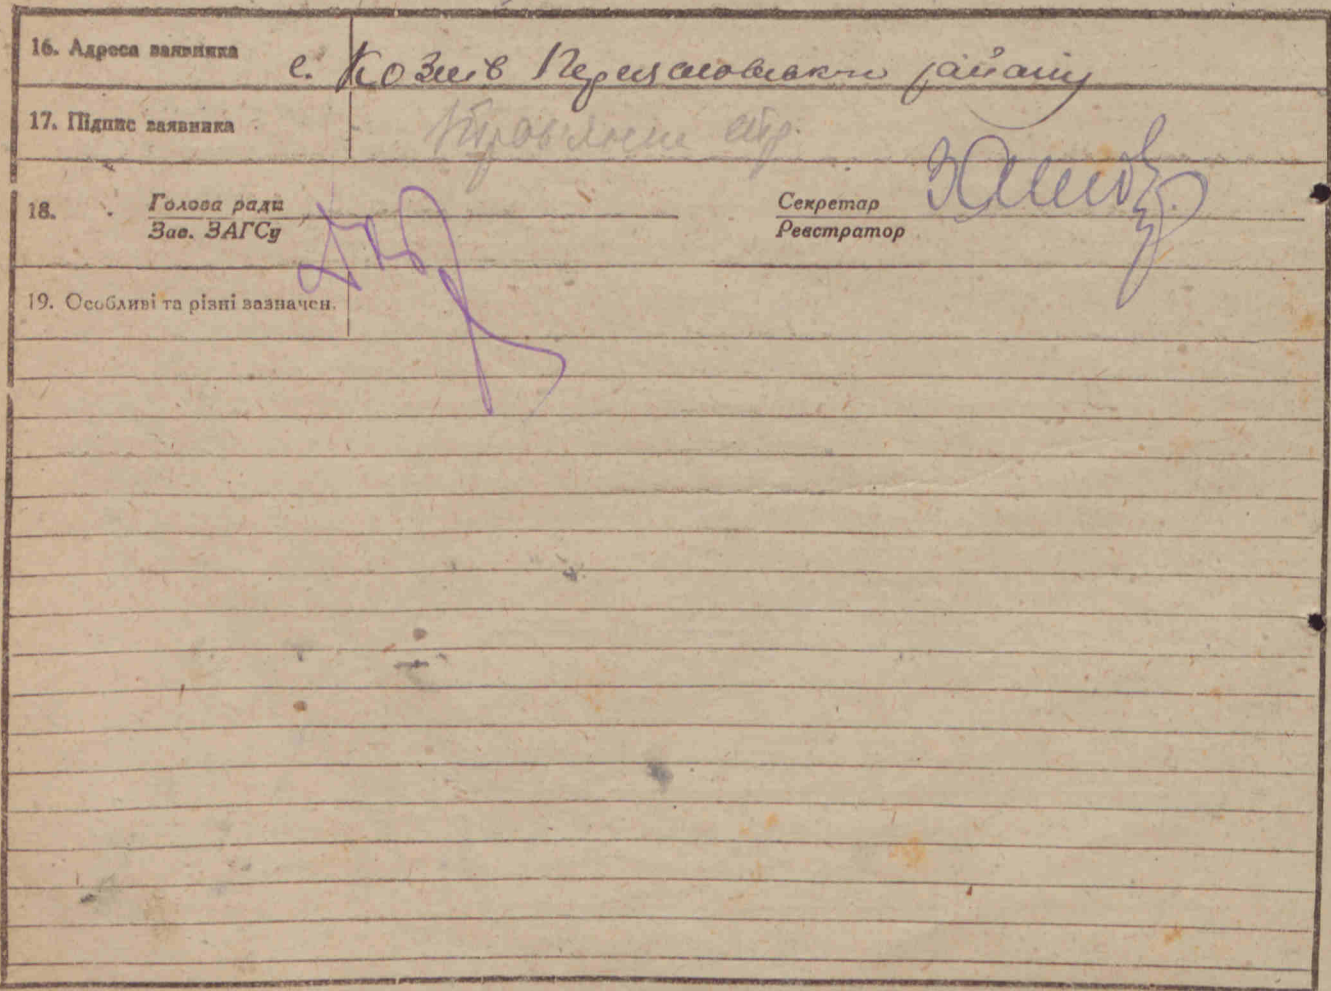 16. Адреса заявника с. Козлів Переяславського району
17. Підпис заявника
18. Голова ради Секретар
Зав. ЗАГСу Реєстратор
19. Особливі та різні зазначен.